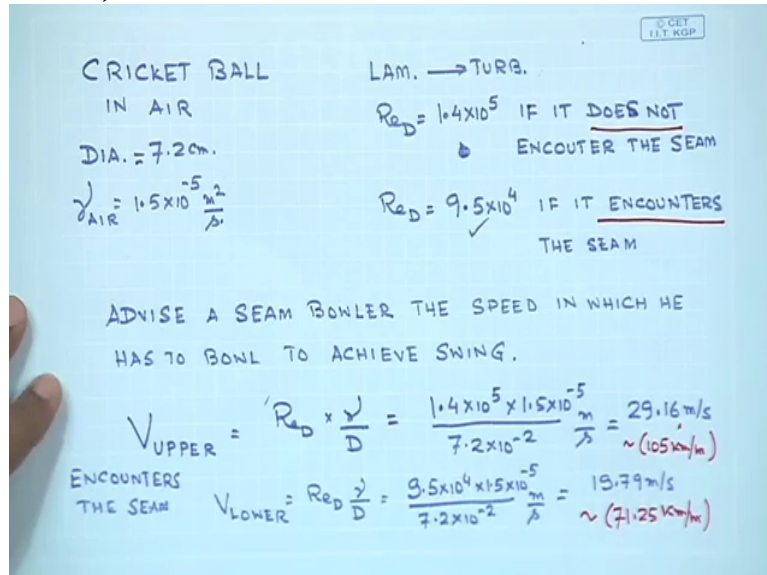 © CET
I.I.T. KGP
CRICKET BALL
IN AIR
DIA. = 7.2 cm.
ν AIR = 1.5×10⁻⁵ m²/s.
LAM. → TURB.
Re_D = 1.4×10⁵ IF IT DOES NOT
ENCOUTER THE SEAM
Re_D = 9.5×10⁴ IF IT ENCOUNTERS
THE SEAM
ADVISE A SEAM BOWLER THE SPEED IN WHICH HE
HAS TO BOWL TO ACHIEVE SWING.
V_UPPER = Re_D × ν/D = 1.4×10⁵ × 1.5×10⁻⁵ / 7.2×10⁻² m/s = 29.16 m/s
~ (105 km/hr)
ENCOUNTERS
THE SEAM
V_LOWER = Re_D ν/D = 9.5×10⁴ × 1.5×10⁻⁵ / 7.2×10⁻² m/s = 19.79 m/s
~ (71.25 km/hr)